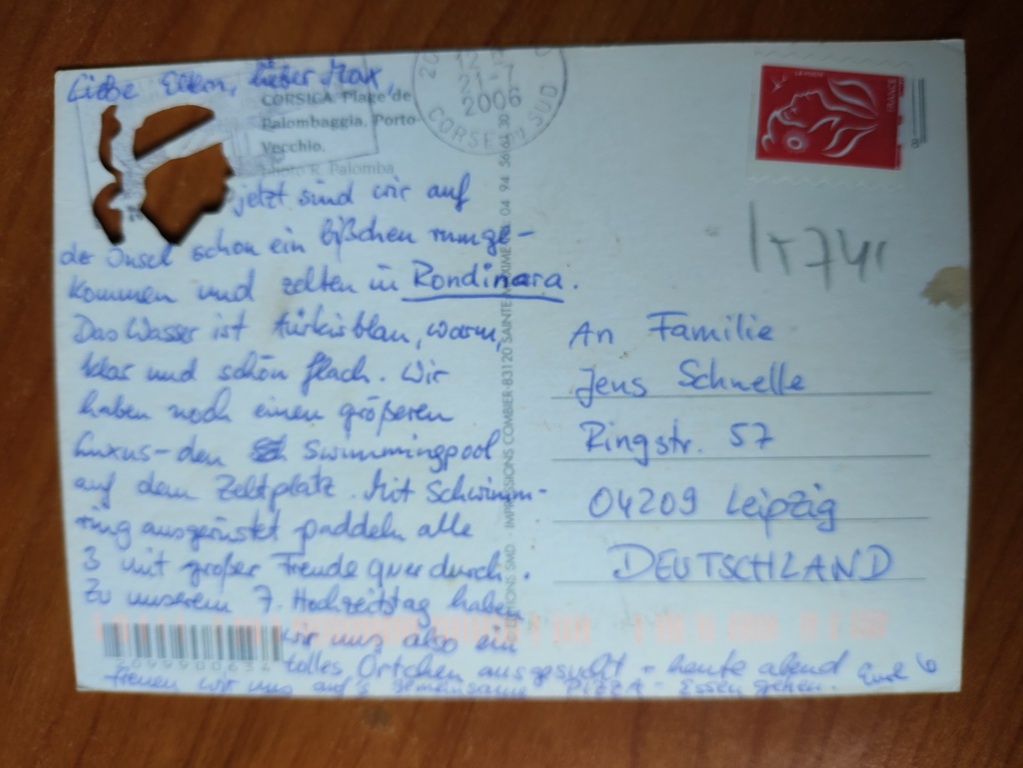 Liebe Eltern, lieber Max,
CORSICA. Plage de
Palombaggia, Porto-
Vecchio.
photo R. Palomba
jetzt sind wir auf
der Insel schon ein bißchen rumge-
kommen und zelten in Rondinara.
Das Wasser ist türkisblau, warm,
klar und schön flach. Wir
haben noch einen größeren
Luxus - den Swimmingpool
auf dem Zeltplatz. Mit Schwimm-
ring ausgerüstet paddeln alle
3 mit großer Freude quer durch.
Zu unserem 7. Hochzeitstag haben
wir uns also ein
tolles Örtchen ausgesucht - heute abend
freuen wir uns auf's gemeinsame PIZZA-Essen gehen. Eure 6
21-7
2006
CORSE DU SUD
IMPRESSIONS COMBIER-83120 SAINTE-MAXIME 04 94
FRANCE
An Familie
Jens Schnelle
Ringstr. 57
04209 Leipzig
DEUTSCHLAND